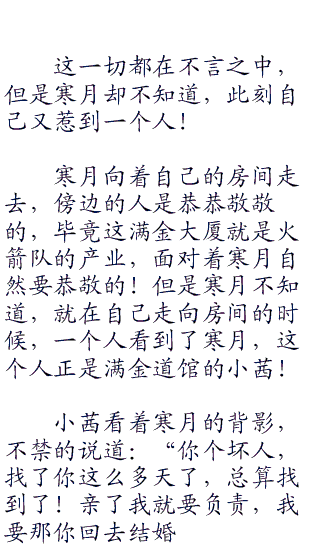 这一切都在不言之中，
但是寒月却不知道，此刻自
己又惹到一个人！
寒月向着自己的房间走
去，傍边的人是恭恭敬敬
的，毕竟这满金大厦就是火
箭队的产业，面对着寒月自
然要恭敬的！但是寒月不知
道，就在自己走向房间的时
候，一个人看到了寒月，这
个人正是满金道馆的小茜！
小茜看着寒月的背影，
不禁的说道：“你个坏人，
找了你这么多天了，总算找
到了！亲了我就要负责，我
要那你回去结婚